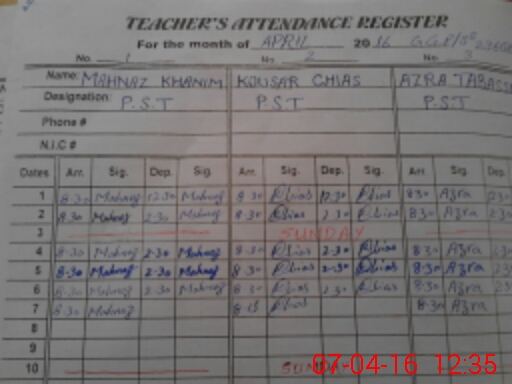 TEACHER'S ATTENDANCE REGISTER
For the month of APRIL 2016 GGP/S
No. 1 No. 2 No. 3
Name: MAHNAZ KHANIM KOUSAR GHIAS AZRA TABASS
Designation: P.S.T P.S.T P.S.T
Phone #
N.I.C #
Dates Arr. Sig. Dep. Sig. Arr. Sig. Dep. Sig. Arr. Sig. Dep.
1 8-30 Mahnaz 12-30 Mahnaz 8-30 12-30 830 Azra
2 8-30 Mahnaz 2-30 Mahnaz 8-30 2-30 830 Azra 2-30
3 SUNDAY
4 8-30 Mahnaz 2-30 Mahnaz 8-30 2-30 830 Azra 2-30
5 8-30 Mahnaz 2-30 Mahnaz 8-30 2-30 830 Azra 2-30
6 8-30 Mahnaz 2-30 Mahnaz 8-30 2-30 8-30 Azra 2-30
7 8-30 Mahnaz 8-30 Azra
8
9
10 SUNDAY
07-04-16 12:35